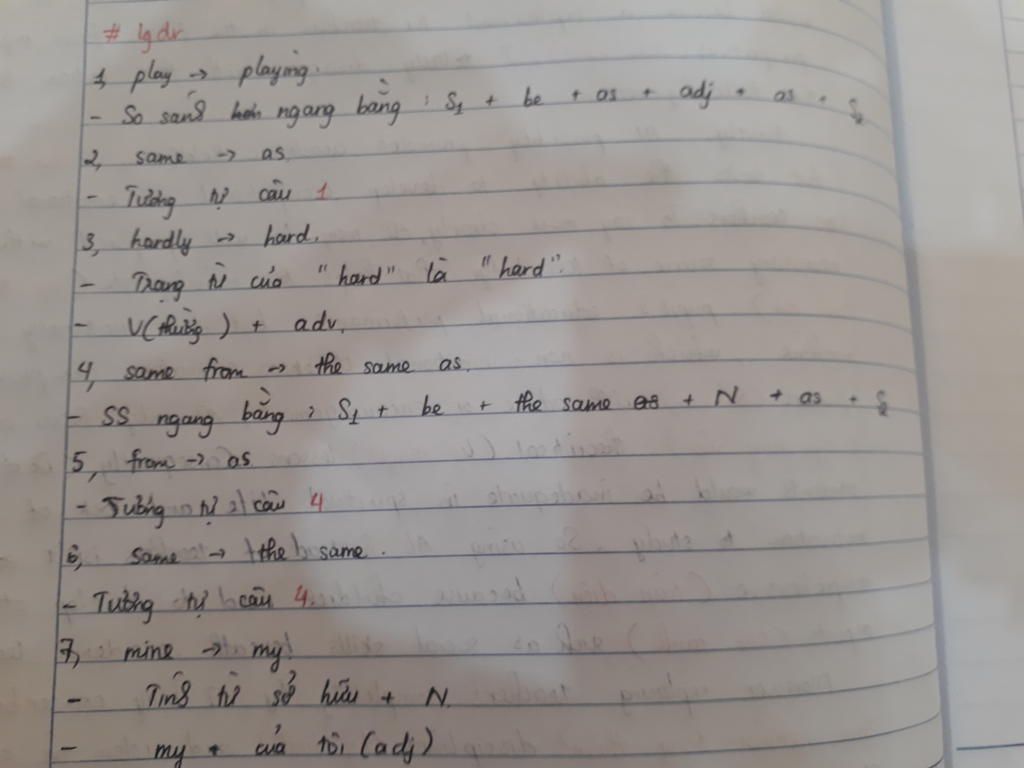 # lg dv
1, play → playing.
- So sánh hơn ngang bằng : S1 + be + as + adj + as + S2
2, same → as
- Tương tự câu 1
3, hardly → hard.
- Trạng từ của "hard" là "hard".
- V(thường) + adv.
4, same from → the same as.
- SS ngang bằng : S1 + be + the same as + N + as + S2
5, from → as
- Tương tự câu 4
6, same → the same.
- Tương tự câu 4.
7, mine → my
- Tính từ sở hữu + N.
- my + của tôi (adj)